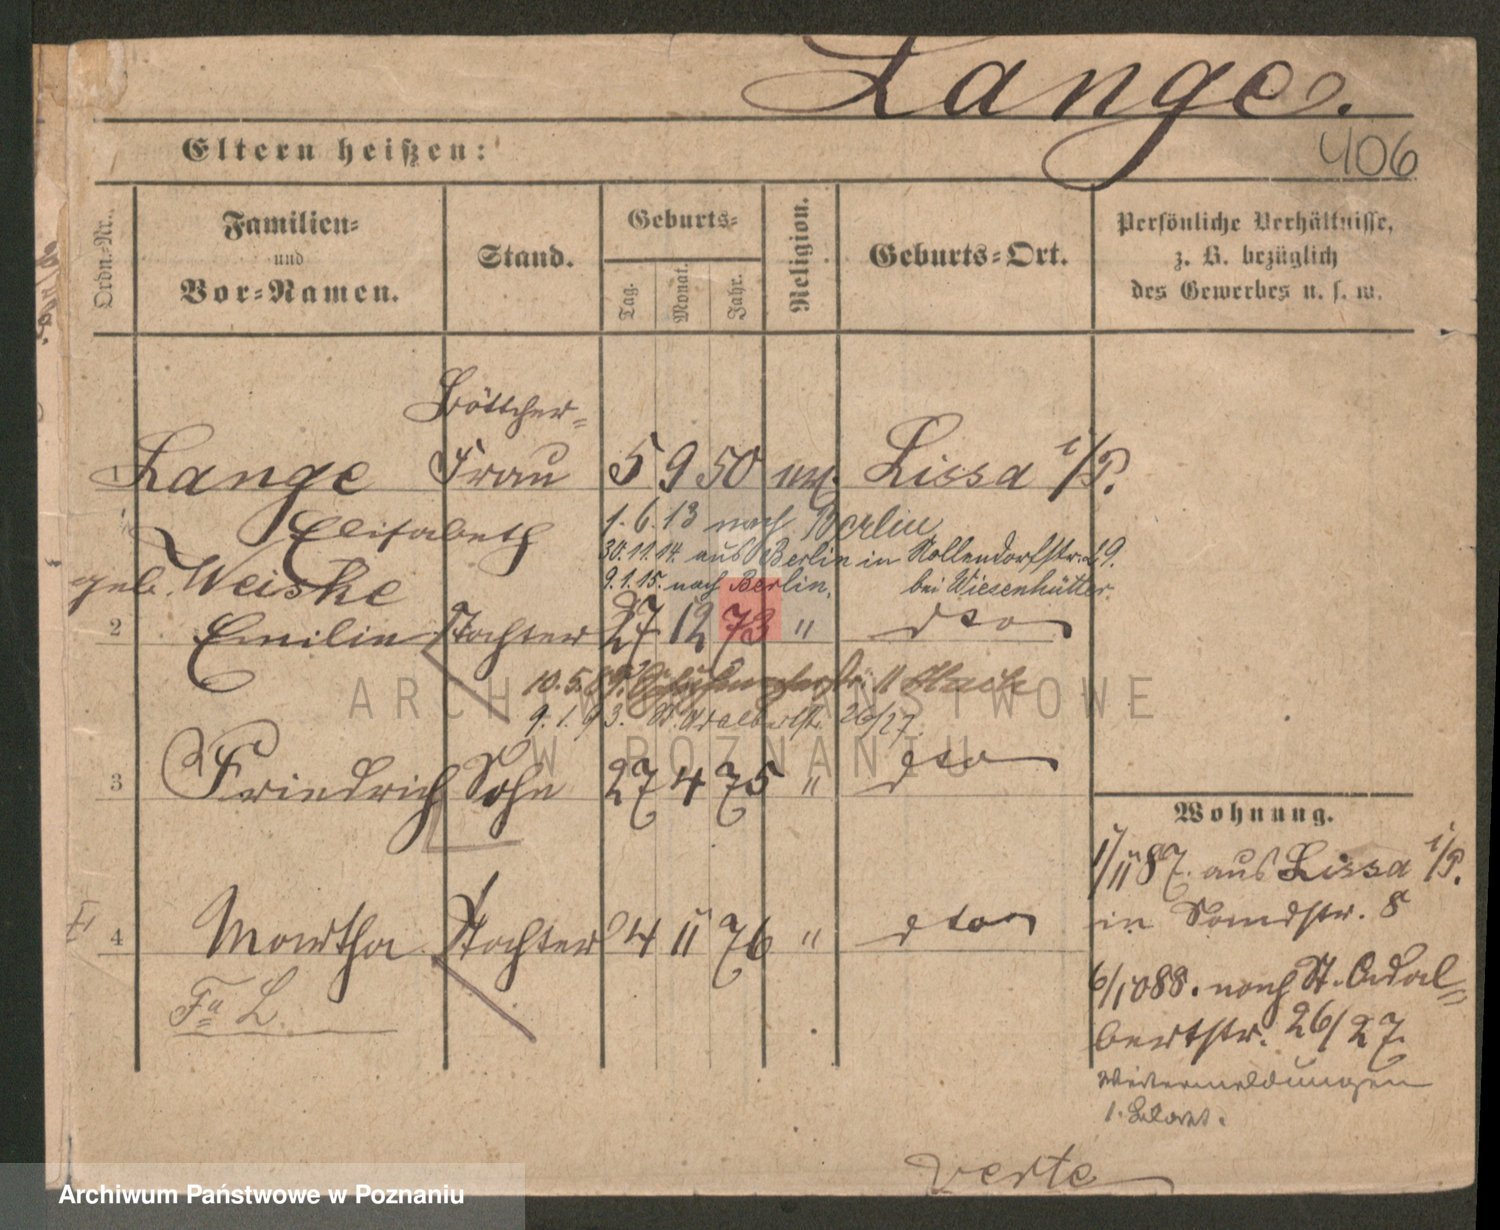 Lange.
406
Eltern heißen:
Ordn.-Nr.
Familien-
und
Vor-Namen.
Stand.
Geburts-
Tag.
Monat.
Jahr.
Religion.
Geburts-Ort.
Persönliche Verhältnisse,
z. B. bezüglich
des Gewerbes u. s. w.
Böttcher-
1 Lange Frau 5 9 50 Lissa i/P.
Elisabeth
1.6.13 nach Berlin
30.11.14. aus Berlin in Nollendorfstr. 29.
geb. Weiske
9.1.15. nach Berlin. bei Wiesenhütter.
2 Emilie Tochter 27 12 73 " dto
10.5.
9.1.93. St. Adalbertstr. 26/27.
3 Friedrich Sohn 27 4 75 " dto
4 Martha Tochter 4 11 76 " dto
Fa L.
Wohnung.
1/11 87. aus Lissa i/P.
in Sandstr. 8
6/10 88. nach St. Adal-
bertstr. 26/27.
Weitermeldungen
verte
ARCHIWUM PAŃSTWOWE
W POZNANIU
Archiwum Państwowe w Poznaniu